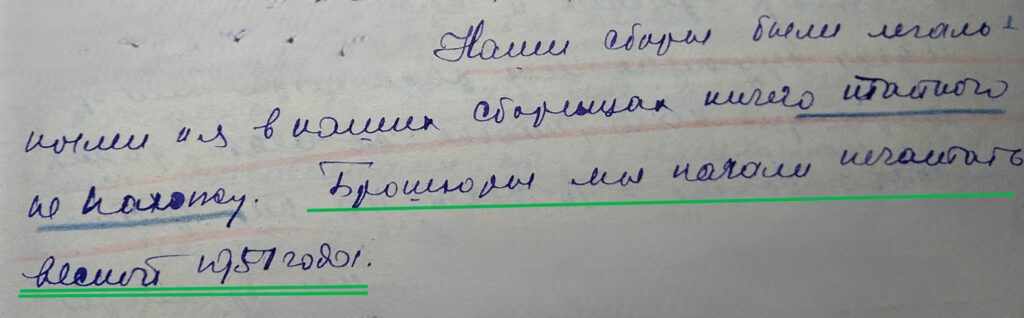 Наши сборы были легаль-
ными и я в наших сборищах ничего штатного
не нахожу. Брошюры мы начали печатать
весной 1951 года.